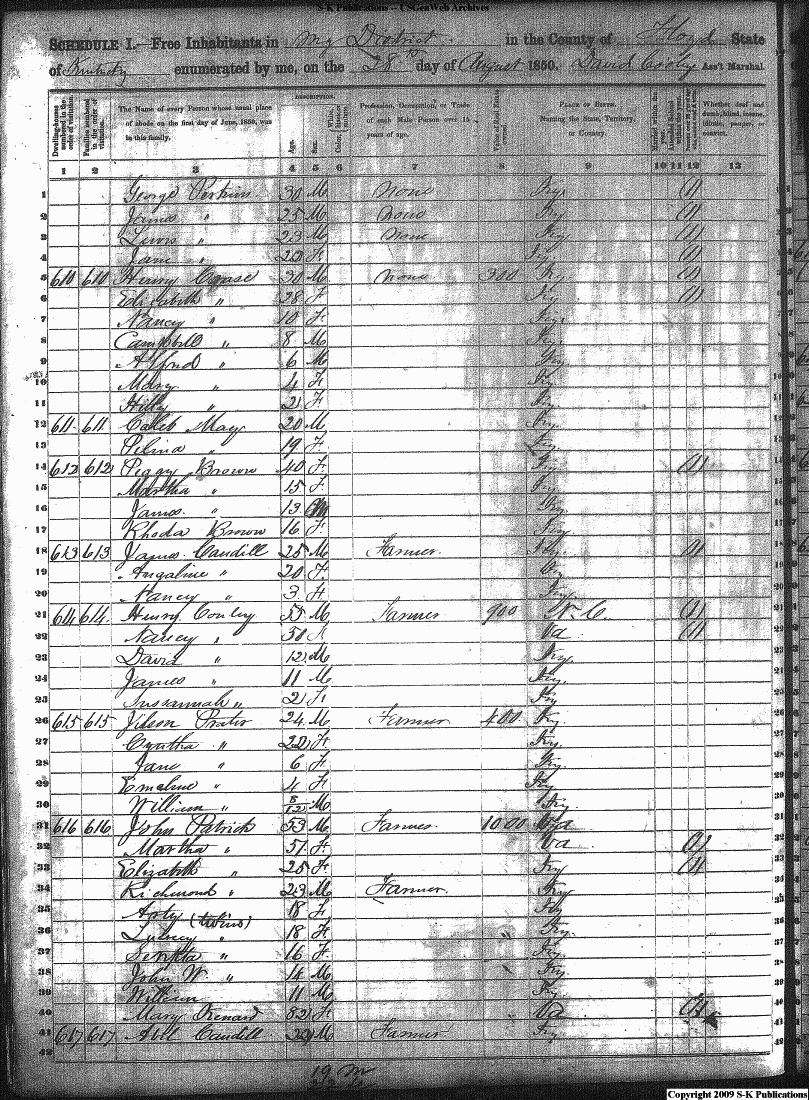 S-K Publications -- USGenWeb Archives
SCHEDULE I.—Free Inhabitants in My District in the County of Floyd State
of Kentucky enumerated by me, on the 28th day of August 1850. David Cooley Ass't Marshal.
Dwelling-houses numbered in the order of visitation. Families numbered in the order of visitation. The Name of every Person whose usual place of abode on the first day of June, 1850, was in this family. DESCRIPTION. Age. Sex. White, Profession, Occupation, or Trade of each Male Person over 15 years of age. Value of Real Estate owned. PLACE OF BIRTH. Naming the State, Territory, or Country. Married within the year. Whether deaf and dumb, blind, insane, idiotic, pauper, or convict.
1 2 3 4 5 6 7 8 9 10 11 12 13
1 George Perkins 30 M None Ky. (1)
2 James " 25 M None Ky. (1)
3 Lewis " 23 M None Ky. (1)
4 Jane " 20 F Ky. (1)
5 610 610 Henry 30 M None 300 Ky. (1)
6 Elizabeth " 28 F Ky. (1)
7 Nancy " 10 F Ky.
8 Campbell " 8 M Ky.
9 Alfred " 6 M Ky.
10 Mary " 4 F Ky.
11 " 2 F Ky.
12 611 611 Caleb May 20 M Ky.
13 Pelina " 19 F Ky.
14 612 612 Peggy Brown 40 F Ky. (1)
15 Martha " 15 F Ky.
16 James " 13 M Ky.
17 Rhoda Brown 16 F Ky.
18 613 613 James Caudill 25 M Farmer Ky. (1)
19 Angaline " 20 F Ky.
20 Nancy " 3 F Ky.
21 614 614 Henry Conley 55 M Farmer 900 N. C. (1)
22 Nancy " 50 F Va (1)
23 David " 12 M Ky.
24 James " 11 M Ky.
25 Sussannah " 2 F Ky.
26 615 615 Jilson Prater 24 M Farmer 400 Ky.
27 Cyntha " 22 F Ky.
28 Jane " 6 F Ky.
29 Emeline " 4 F Ky.
30 William " 5/12 M Ky.
31 616 616 John Patrick 53 M Farmer 1000 Va
32 Martha " 51 F Va (1)
33 Elizabeth " 25 F Ky (1)
34 Richmond " 23 M Farmer Ky
35 18 F Ky
36 (twins) " 18 F " Ky.
37 " 16 F Ky.
38 John W. " 14 M Ky.
39 William 11 M Ky.
40 Mary 82 F Va (1)
41 617 617 Abel Caudill M Farmer Ky.
42
19 M
Copyright 2009 S-K Publications